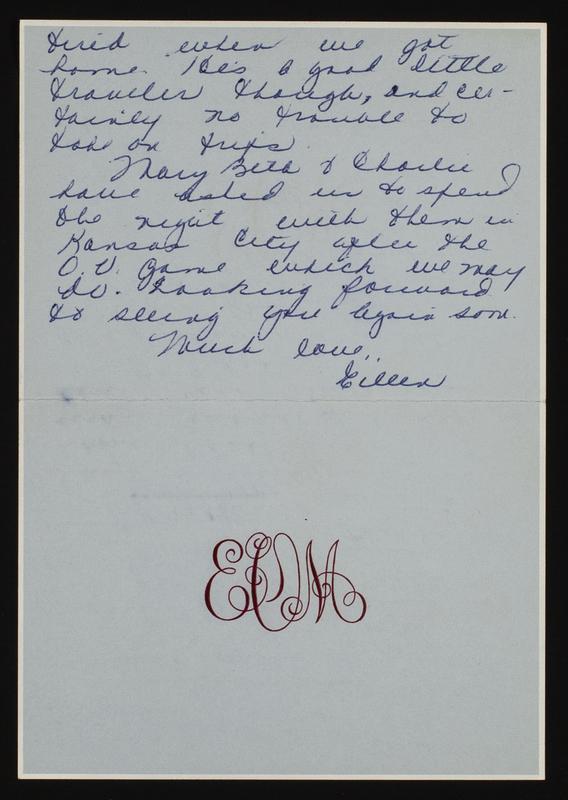 tired when we got
home. He's a good little
traveler though, and cer-
tainly no trouble to
take on trips.
Mary Beth & Charlie
have asked us to spend
the night with them in
Kansas City after the
O.U. game which we may
do. Looking forward
to seeing you again soon.
Much love,
Eileen